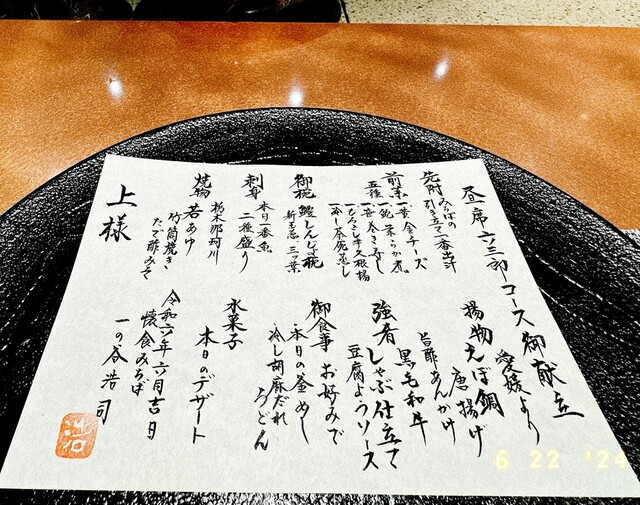 昼席 六三郎コース御献立
先附 みちばの
引き立て一番出汁
前菜 一、黄金チーズ
五種 一、鮑 柔らか煮
一、笹巻きずし
一、冷し茶碗蒸し
御椀 鱧しんじょ椀
新玉葱、三つ葉
刺身 本日一番魚
二種盛り
焼物 栃木那珂川
若あゆ
竹筒焼き
たで酢みそ
上様
愛媛より
揚物 えぼ鯛
唐揚げ
旨酢あんかけ
黒毛和牛
強肴 しゃぶ仕立て
豆腐ようソース
御食事 お好みで
本日の釜めし
冷し胡麻だれ
うどん
水菓子
本日のデザート
令和六年六月吉日
懐食みちば
一の谷浩司
6 22 '24